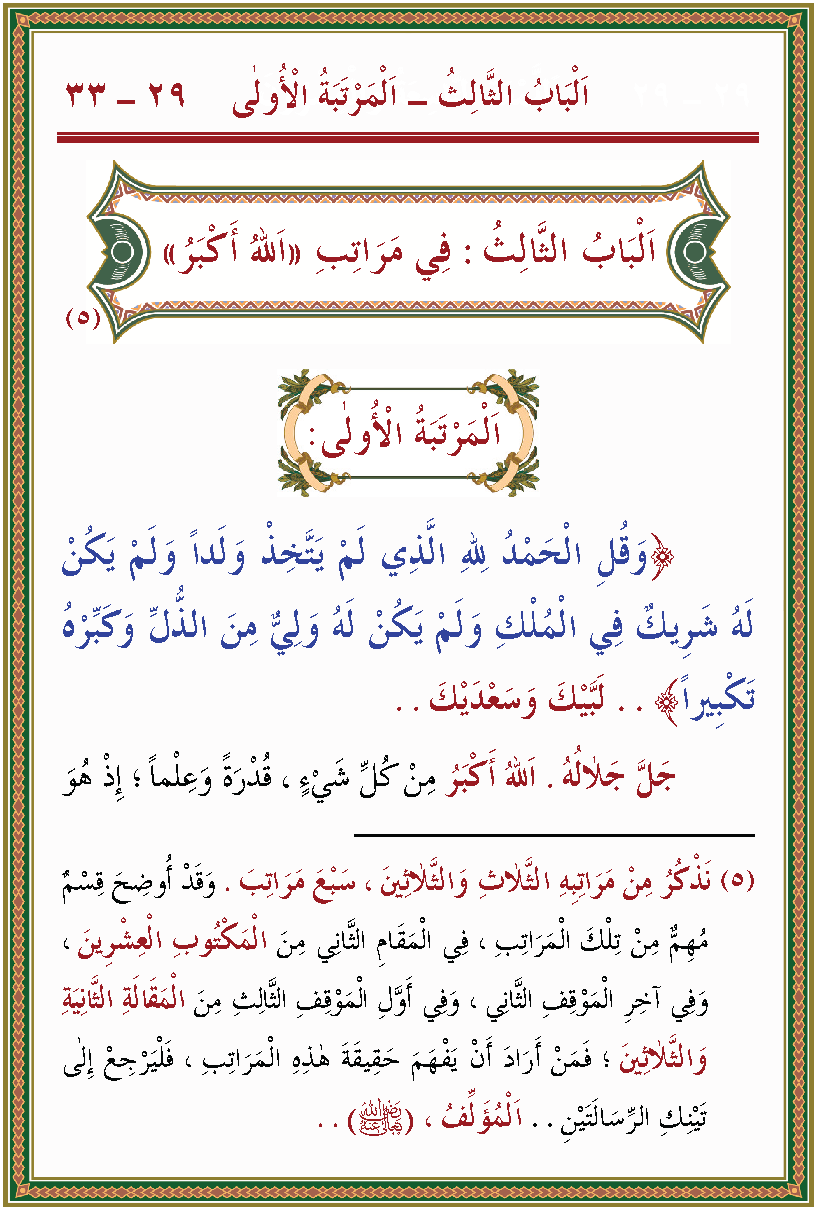 اَلْبَابُ الثَّالِثُ – اَلْمَرْتَبَةُ الْأُولٰى ٢٩ – ٣٣
اَلْبَابُ الثَّالِثُ : فِي مَرَاتِبِ «اَللهُ أَكْبَرُ»
(٥)
اَلْمَرْتَبَةُ الْأُولٰى:
﴿وَقُلِ الْحَمْدُ لِلهِ الَّذِي لَمْ يَتَّخِذْ وَلَداً وَلَمْ يَكُنْ
لَهُ شَرِيكٌ فِي الْمُلْكِ وَلَمْ يَكُنْ لَهُ وَلِيٌّ مِنَ الذُّلِّ وَكَبِّرْهُ
تَكْبِيراً﴾ . . لَبَّيْكَ وَسَعْدَيْكَ . .
جَلَّ جَلَالُهُ . اَللهُ أَكْبَرُ مِنْ كُلِّ شَيْءٍ ، قُدْرَةً وَعِلْماً ؛ إِذْ هُوَ
(٥) نَذْكُرُ مِنْ مَرَاتِبِهِ الثَّلَاثِ وَالثَّلَاثِينَ ، سَبْعَ مَرَاتِبَ . وَقَدْ أُوضِحَ قِسْمٌ
مُهِمٌّ مِنْ تِلْكَ الْمَرَاتِبِ ، فِي الْمَقَامِ الثَّانِي مِنَ الْمَكْتُوبِ الْعِشْرِينَ ،
وَفِي آخِرِ الْمَوْقِفِ الثَّانِي ، وَفِي أَوَّلِ الْمَوْقِفِ الثَّالِثِ مِنَ الْمَقَالَةِ الثَّانِيَةِ
وَالثَّلَاثِينَ ؛ فَمَنْ أَرَادَ أَنْ يَفْهَمَ حَقِيقَةَ هٰذِهِ الْمَرَاتِبِ ، فَلْيَرْجِعْ إِلٰى
تَيْنِكِ الرِّسَالَتَيْنِ . . اَلْمُؤَلِّفُ ، (رَضِيَ اللهُ تَعَالٰى عَنْهُ) . .